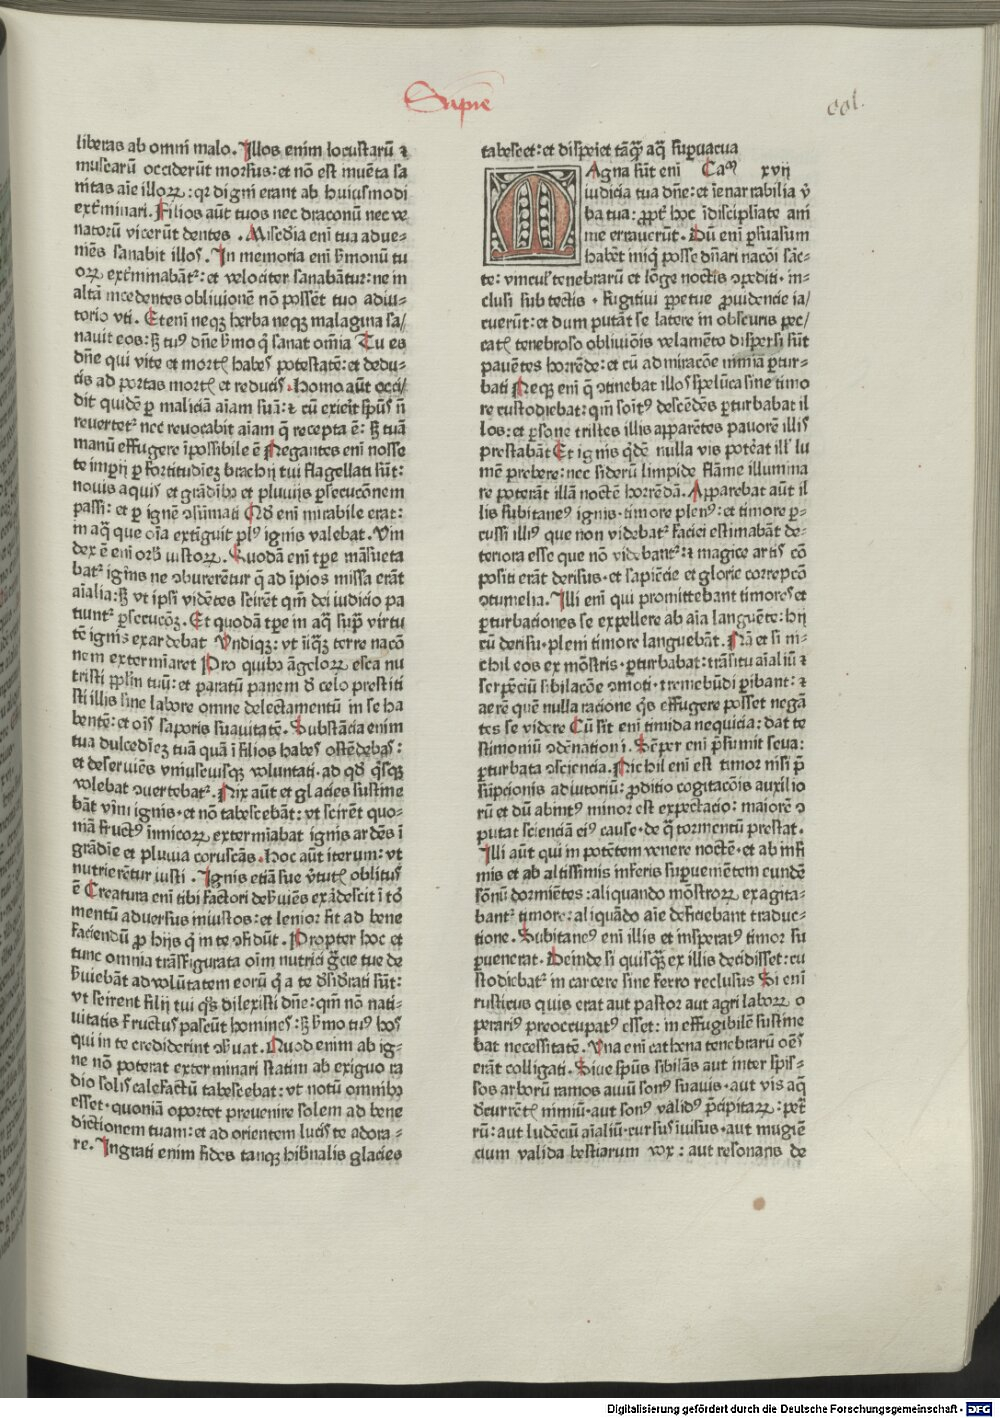 Sapie
ccl.
liberas ab omni malo. Illos enim locustarū ⁊
muscarū occiderūt morsus: et nō est inuēta sa
nitas aīe illoꝝ: qr digni erant ab huiusmodi
extīminari. Filios aūt tuos nec draconū nec ve
natorū vicerūt dentes. Misēdia eni tua adue-
niēs sanabit illos. In memoria eni ẜmonū tu
oꝝ extīminabātᷣ: et velociter sanabātur: ne in
altā incedentes obliuionē nō possēt tuo adiu-
torio vti. Eteni neqꝫ herba neqꝫ malagma sa/
nauit eos: sꝫ tuꝰ dn̄e ẜmo q̄ sanat om̄ia Tu es
dn̄e qui vite et mortꝭ habes potestatē: et dedu-
cis ad portas mortꝭ et reducis. Homo aūt occi/
dit quidē ꝑ maliciā aīam suā: ⁊ cū exierit spūs n̄
reuertetᷣ nec reuocabit aīam q̄ recepta ē: sꝫ tuā
manū effugere īpossibile ē Negantes eni nosse
te impij ꝑ fortitudīeꝫ brachij tui flagellati sūt:
nouis aquis et grādībꝰ et pluuijs ꝑsecucōnem
passi: et ꝑ ignē ↄsūmati Qd eni mirabile erat:
in aq̄ que oīa extīguit plꝰ ignis valebat. Vin
dex ē eni orbꝭ iustoꝝ. Quodā eni tꝑe māsueta
batᷣ ignis ne ↄburerētur q̄ ad īpios missa erāt
aīalia: sꝫ vt ipsi vidētes scirēt qm̄ dei iudicio pa
tiuntᷣ ꝑsecucōꝫ. Et quodā tꝑe in aq̄ supᷣ virtu
tē ignis exardebat Vndiqꝫ: vt iīqꝫ terre nacō
nem extermīaret Pro quibꝰ āgeloꝝ esca nu
tristi pplm̄ tuū: et paratū panem d̄ celo prestiti
sti illis sine labore omne delectamentū in se ha
bentē: et oīs saporis suauitatē. Substācia enim
tua dulcedīeꝫ tuā quā ī filios habes ostēdebas:
et deseruiēs vniuscuiusqꝫ volūntati. ad qd̄ q̄sqꝫ
volebat ↄuertebatᷣ. Nix aūt et glacies sustine
bāt vim ignis. et nō tabescebāt: vt scirēt quo-
niā fructꝰ inimicoꝝ extermīabat ignis ardēs ī
grādīe et pluuia coruscās. hoc aūt iterum: vt
nutrierētur iusti. Ignis etiā sue vtutꝭ oblitus
ē Creatura eni tibi factori deẜuiēs exādescit ī tor
mentū aduersus iniustos: et lenior fit ad bene
faciendū pro hijs q̄ in te ↄfidūt. Propter hoc et
tunc omnia trāsfigurata oīm nutrici gr̄cie tue de
ẜuiebāt ad volūtatem eorū q̄ a te dsidrati sūt:
vt scirent filij tui qs̄ dilexisti dn̄e: qm̄ nō nati-
uitatis fructus pascūt homines: sꝫ ẜmo tuꝰ hos
qui in te crediderint ↄẜuat. Quod enim ab ig-
ne nō poterat exterminari statim ab exiguo ra
dio solis calefactū tabescebat: vt notū omnibꝰ
esset. quoniā oportet preuenire solem ad bene
dictionem tuam: et ad orientem lucis te adora-
re. Ingrati enim fides tanqꝫ hibnalis glacies
tabescet: et disperiet tāꝙ̄ aq̄ supuacua
Agna sūt eni Cam xvij
iudicia tua dn̄e: et ienarrabilia v̄
ba tua: ꝓpt̄ hoc īdiscipliate ani
me errauerūt. Dū eni ꝑsuasum
habēt iniq̄ posse dn̄ari nacōi sāc-
te: vinculꝭ tenebrarū et lōge noctis ↄpediti. in-
clusi sub tectis. fugitiui ꝑpetue ꝓuidencie ia/
cuerūt: et dum putāt se latere in obscuris pec/
catꝭ tenebroso obliuiōis velamēto dispersi sūt
pauētes horrēde: et cū admiracōe nimia ꝑtur-
bati Neqꝫ eni q̄ ↄtinebat illos spelūca sine timo
re custodiebat: qm̄ soitꝰ descēdēs ꝑturbabat il
los: et ꝑsone tristes illis apparētes pauorē illis
prestabāt Et ignis q̄dē nulla vis potēat illꝭ lu
mē prebere: nec siderū limpide flāme illumina
re poterāt illā noctē horrēdā. Apparebat aūt il
lis subitaneꝰ ignis. timore plenꝰ: et timore ꝑ-
cussi illiꝰ que non videbatᷣ faciei estimabāt de-
teriora esse que nō videbantᷣ: ⁊ magice artis cō
positi erāt derisus. et sapiēcie et glorie correpcō
ↄtumelia. Illi eni qui promittebant timores et
ꝑturbaciones se expellere ab aīa languēte: hij
cū derisu. pleni timore languebāt. Nā et si ni-
chil eos ex mōstris. ꝑturbabat: trāsitu aīaliū ⁊
serpēciū sibilacōe ↄmoti. tremebūdi ꝑibant: ⁊
aerē quē nulla racione q̄s effugere posset negā
tes se videre Cū sit eni timida nequicia: dat te
stimoniū ↄdēnationi. Sēper eni p̄sumit seua:
ꝑturbata ↄsciencia. Nichil eni est timor nisi p̄
sūpcionis adiutoriū: ꝓditio cogitacōis auxilio
rū et dū abintꝰ minor est expectacio: maiorē ↄ
putat scienciā eiꝰ cause. de q̄ tormentū prestat.
Illi aūt qui in potētem venere noctē. et ab infi
mis et ab altissimis inferis supueniēntem eundē
sōnū dormiētes: aliquando mōstroꝝ exagita-
bantᷣ timore: aliquādo aīe deficiebant traduc-
tione. Subitaneꝰ eni illis et insperatꝰ timor su
ꝑuenerat. Deinde si quisqꝫ ex illis decidisset: cu
stodiebatᷣ in carcere sine ferro reclusus Si eni
rusticus quis erat aut pastor aut agri laboꝝ o
perariꝰ preoccupatꝰ esset: in effugibilē sustine
bat necessitatē. Vna eni cathena tenebrarū oēs
erāt colligati. Siue spūs sibilās aut inter spis-
sos arborū ramos auiū sonꝰ suauis. aut vis aq̄
dcurrētꝭ nimiū. aut sonꝰ validꝰ p̄cipitaꝝ: petr̄
rū: aut ludēciū aīaliū. cursus iuisus. aut mugiē
cium valida bestiarum vox: aut resonans de
Digitalisierung gefördert durch die Deutsche Forschungsgemeinschaft - DFG